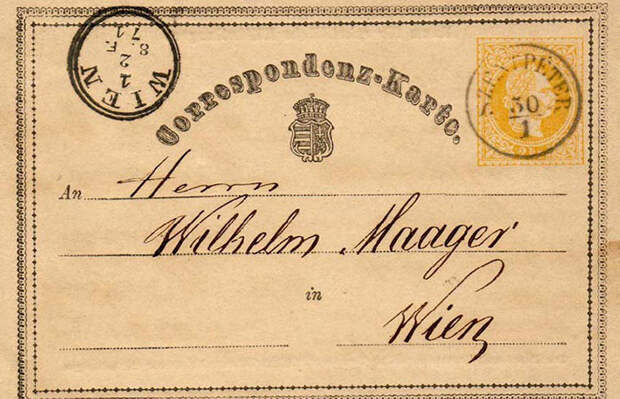 WIEN
1
2 F.
8.
71
Correspondenz-Karte.
SZENTPÉTER
30
1
An Herrn
Wilhelm Maager
in
Wien